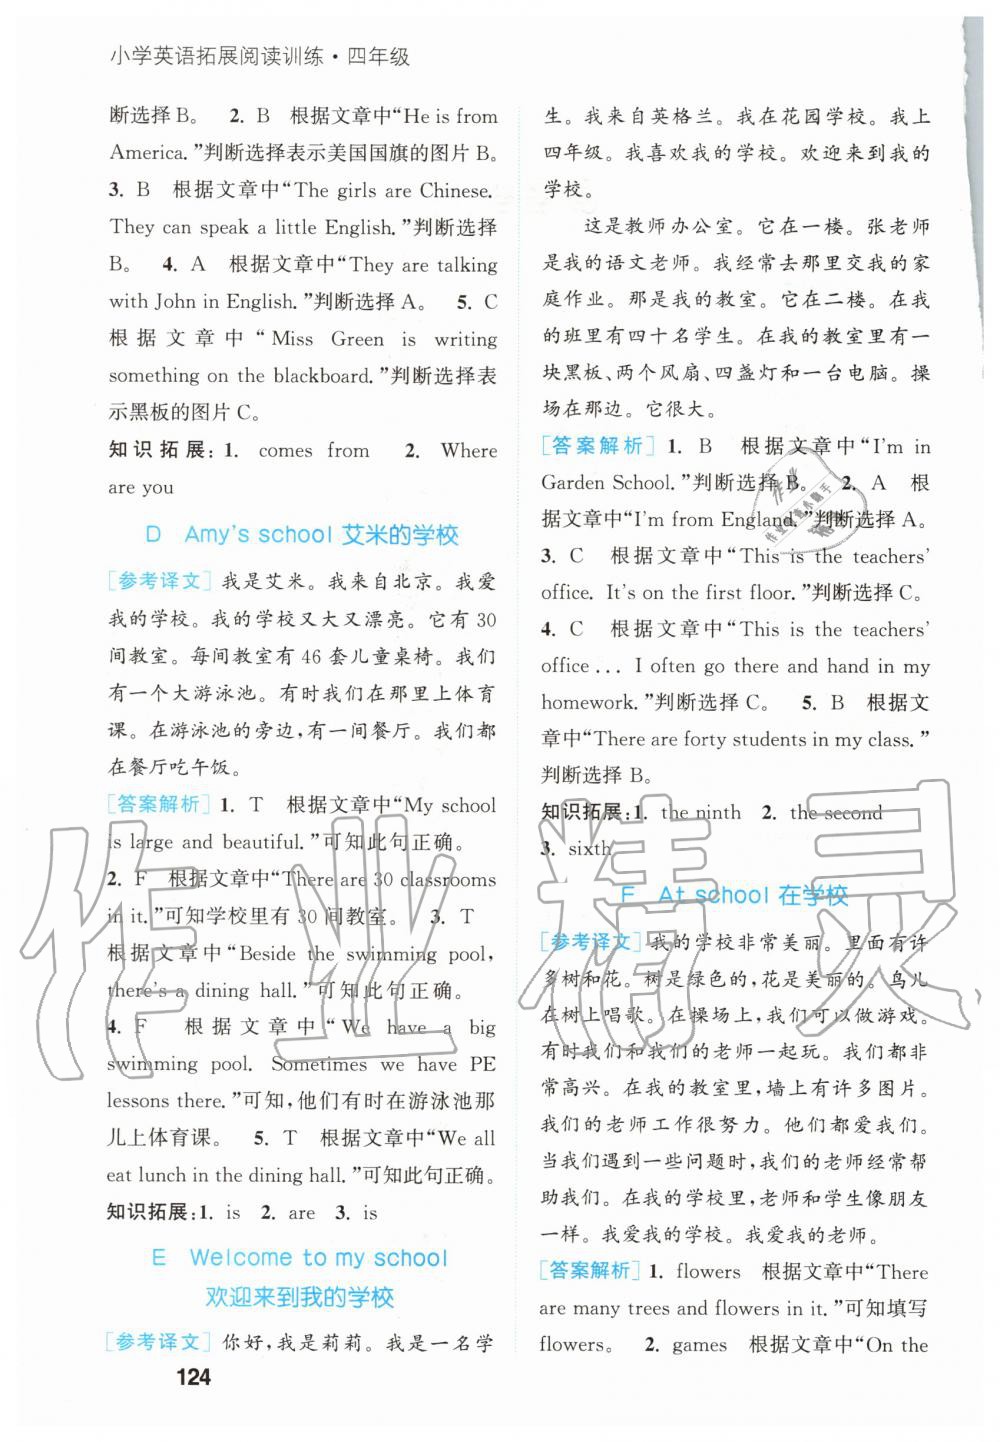 小学英语拓展阅读训练·四年级
断选择B。 2. B 根据文章中“He is from
America. ”判断选择表示美国国旗的图片B。
3. B 根据文章中“The girls are Chinese.
They can speak a little English. ”判断选择
B。 4. A 根据文章中“They are talking
with John in English. ”判断选择A。 5. C
根据文章中“Miss Green is writing
something on the blackboard. ”判断选择表
示黑板的图片C。
知识拓展:1. comes from 2. Where
are you
D Amy's school 艾米的学校
[参考译文] 我是艾米。我来自北京。我爱
我的学校。我的学校又大又漂亮。它有30
间教室。每间教室有46套儿童桌椅。我们
有一个大游泳池。有时我们在那里上体育
课。在游泳池的旁边,有一间餐厅。我们都
在餐厅吃午饭。
[答案解析] 1. T 根据文章中“My school
is large and beautiful. ”可知此句正确。
2. F 根据文章中“There are 30 classrooms
in it. ”可知学校里有30间教室。 3. T
根据文章中“Beside the swimming pool,
there's a dining hall. ”可知此句正确。
4. F 根据文章中“We have a big
swimming pool. Sometimes we have PE
lessons there. ”可知,他们有时在游泳池那
儿上体育课。 5. T 根据文章中“We all
eat lunch in the dining hall. ”可知此句正确。
知识拓展:1. is 2. are 3. is
E Welcome to my school
欢迎来到我的学校
[参考译文] 你好,我是莉莉。我是一名学
124
生。我来自英格兰。我在花园学校。我上
四年级。我喜欢我的学校。欢迎来到我的
学校。
这是教师办公室。它在一楼。张老师
是我的语文老师。我经常去那里交我的家
庭作业。那是我的教室。它在二楼。在我
的班里有四十名学生。在我的教室里有一
块黑板、两个风扇、四盏灯和一台电脑。操
场在那边。它很大。
[答案解析] 1. B 根据文章中“I'm in
Garden School. ”判断选择B。 2. A 根
据文章中“I'm from England. ”判断选择A。
3. C 根据文章中“This is the teachers'
office. It's on the first floor. ”判断选择C。
4. C 根据文章中“This is the teachers'
office ... I often go there and hand in my
homework. ”判断选择C。 5. B 根据文
章中“There are forty students in my class. ”
判断选择B。
知识拓展:1. the ninth 2. the second
3. sixth
F At school 在学校
[参考译文] 我的学校非常美丽。里面有许
多树和花。树是绿色的,花是美丽的。鸟儿
在树上唱歌。在操场上,我们可以做游戏。
有时我们和我们的老师一起玩。我们都非
常高兴。在我的教室里,墙上有许多图片。
我们的老师工作很努力。他们都爱我们。
当我们遇到一些问题时,我们的老师经常帮
助我们。在我的学校里,老师和学生像朋友
一样。我爱我的学校。我爱我的老师。
[答案解析] 1. flowers 根据文章中“There
are many trees and flowers in it. ”可知填写
flowers。 2. games 根据文章中“On the
作业精灵